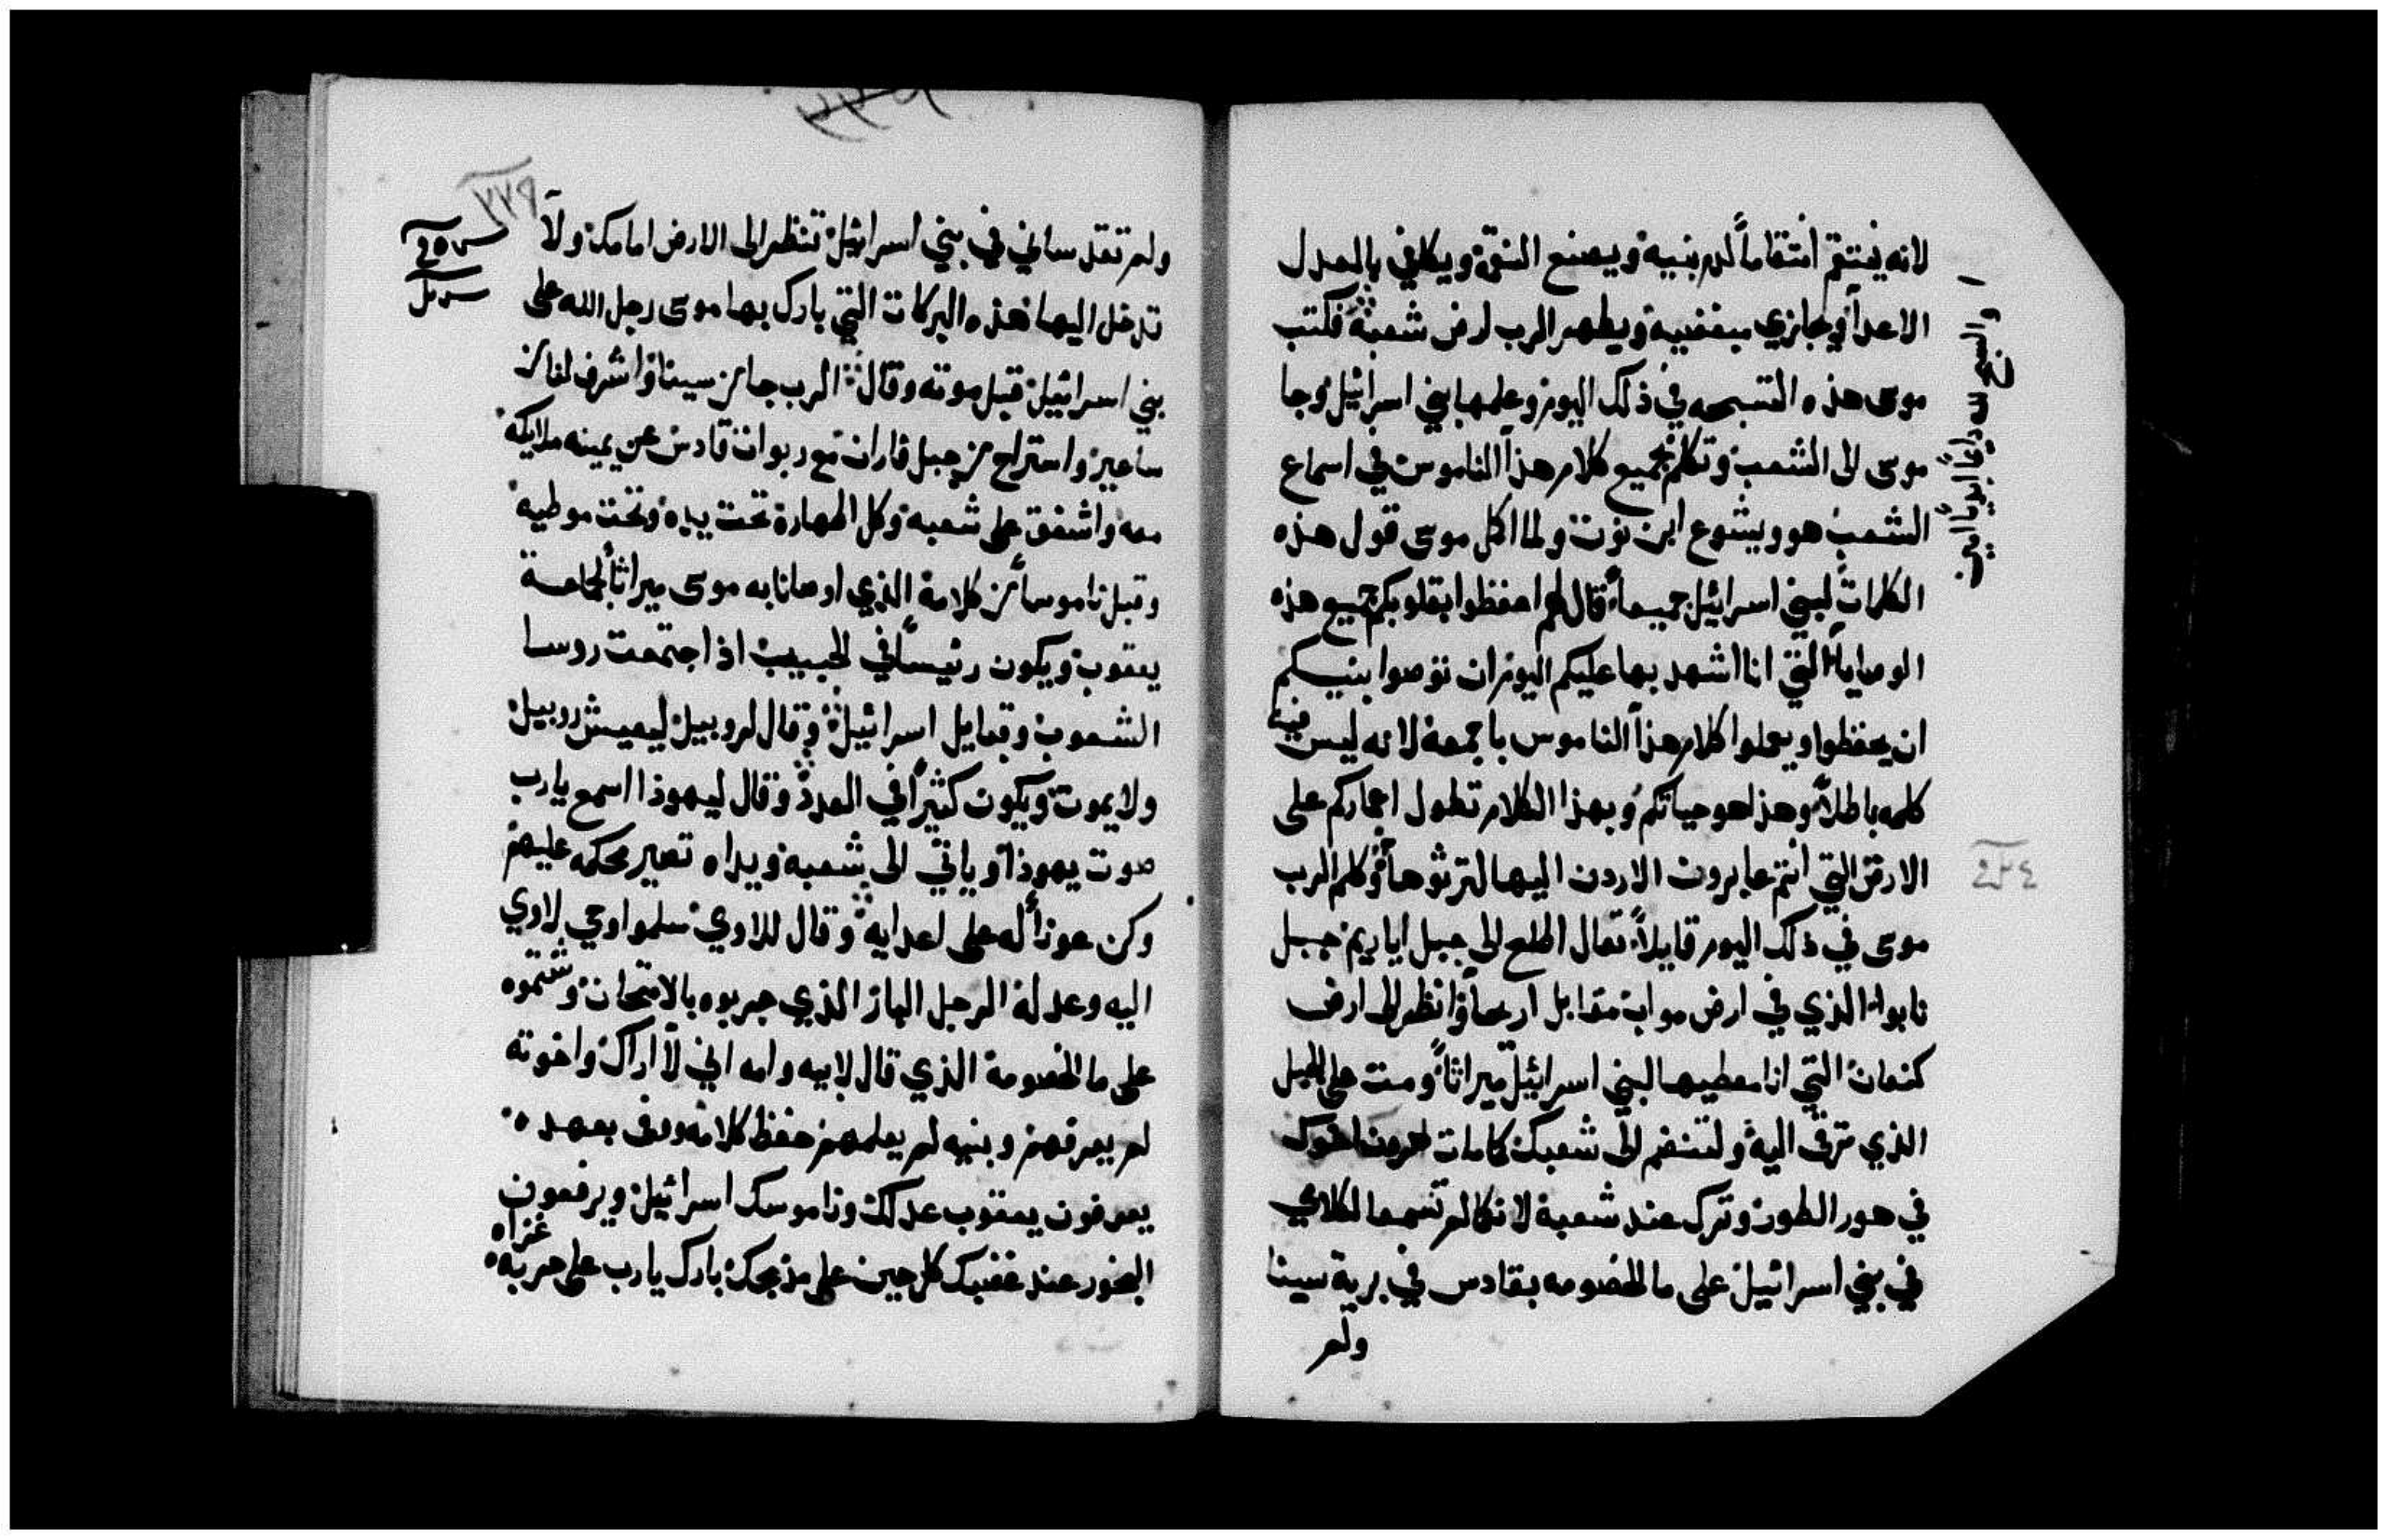 لانه ينتقم انتقاماً لدم بنيه ويصنع النقمة ويكافي بالعدل
الاعدآ ويجازي مبغضيه ويطهر الرب ارض شعبه فكتب
موسى هذه التسبحه في ذلك اليوم وعلمها بني اسرائيل وجا
موسى الى الشعب وتكلم بجميع كلام هذا الناموس في اسماع
الشعب هو ويشوع ابن نون ولما اكمل موسى قول هذه
الكلمات لبني اسرائيل جميعاً قال لهم احفظوا بقلوبكم جميع هذه
الوصايا التي انا اشهد بها عليكم اليوم ان توصوا بنيكم
ان يحفظوا ويعملوا كلام هذا الناموس باجمعه لانه ليس فيه
كلمه باطلاً وهذا هو حياتكم وبهذا الكلام تطول اعماركم على
الارض التي انتم عابرون الاردن اليها لترثوها وكلم الرب
موسى في ذلك اليوم قايلاً تعال اطلع الى جبل اباريم جبل
نابوا الذي في ارض مواب مقابل اريحا وانظر الى ارض
كنعان التي انا معطيها لبني اسرائيل ميراثاً ومت على الجبل
الذي ترقى اليه ولتنضم الى شعبك كما مات هرون اخوك
في هور الطور وترك عند شعبه لانكما لم تسمعا لكلامي
في بني اسرائيل على ما الخصومه بقادس في برية سينا
ولم
٤٢٤
٢٢٩
ولم تقدساني في بني اسرائيل تنظر الى الارض امامك ولا
تدخل اليها هذه البركات التي بارك بها موسى رجل الله على
بني اسرائيل قبل موته وقال الرب جا من سينا واشرف لنا من
ساعير واستراح من جبل فاران مع ربوات قادس عن يمينه ملايكه
معه واشفق على شعبه وكل الطهارة تحت يده وتحت موطيه
وقبل ناموساً من كلامه الذي اوصانا به موسى ميراثاً لجماعة
يعقوب ويكون رئيساً في الحبيب اذا اجتمعت روسا
الشعوب وقبايل اسرائيل وقال لروبيل ليعيش روبيل
ولا يموت ويكون كثيراً في العدد وقال ليهوذا اسمع يارب
صوت يهوذا وياتي الى شعبه ويداه تصير محكمه عليهم
وكن عوناً له على اعدايه وقال للاوي سلموا وحي لاوي
اليه وعدله الرجل الباز الذي جربوه بالامتحان وشتموه
على ما الخصومة الذي قال لابيه وامه اني لا اراك واخوته
لم يعرفهم وبنيه لم يعلمهم حفظ كلامه ووفى بعهده
يعرفون يعقوب عدلك وناموسك اسرائيل ويرفعون
البخور عند غضبك كل حين على مذبحك بارك يارب على حربه